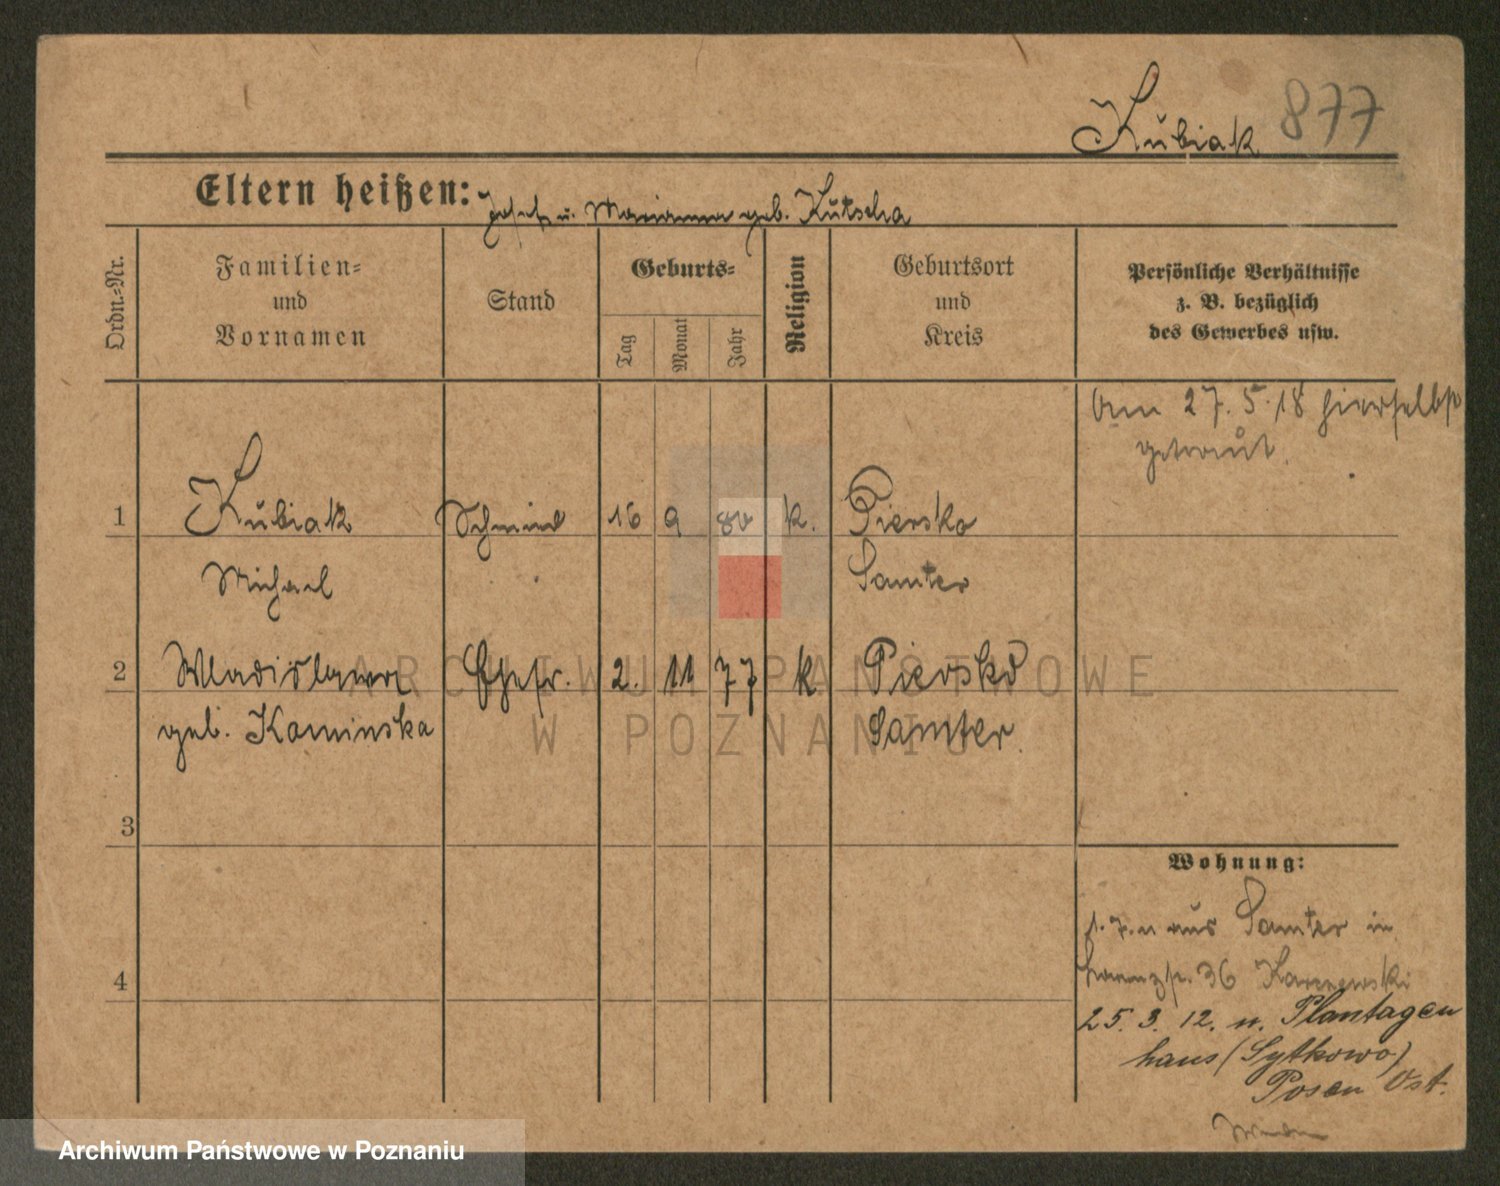 Kubiak 877
Eltern heißen: Josef u. Marianna geb. Kutscha
Ordn.=Nr.
Familien=
und
Vornamen
Stand
Geburts=
Tag
Monat
Jahr
Religion
Geburtsort
und
Kreis
Persönliche Verhältnisse
z. B. bezüglich
des Gewerbes usw.
Am 27.5.18 hierselbst
getraut.
1 Kubiak Schmied 16 9 80 k. Piersko
Michael Samter
2 Wladislawa Ehefr. 2. 11 77 k Piersko
geb. Kaminska Samter.
3
4
Wohnung:
aus Samter in
36
25. 3. 12. n. Plantagen
haus (Sytkowo)
Posen Ost.
ARCHIWUM PAŃSTWOWE
W POZNANIU
Archiwum Państwowe w Poznaniu